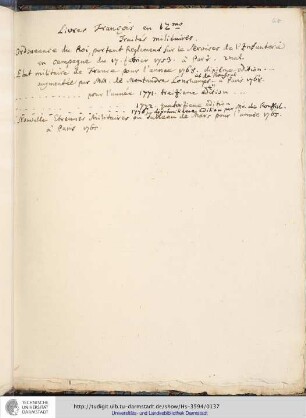 Livres François en 12mo
Traités militaires.
Ordonnance du Roi portant Reglement sur le Service de l'Infanterie
en campagne du 17. fevrier 1753. à Paris.
Etat militaire de France pour l'année 1768. dixieme edition
augmentée par Mrs. de Montandre Lonchamps à Paris 1768.
pour l'année 1771. treizieme edition
1772. quatorzieme edition
1776. edition par Mr. de Roussel.
Etrennes Militaires ou de Mars pour l'année 1765.
à Paris 1765
TECHNISCHE
UNIVERSITÄT
DARMSTADT
http://tudigit.ulb.tu-darmstadt.de/show/Hs-3594/0137
Universitäts- und Landesbibliothek Darmstadt